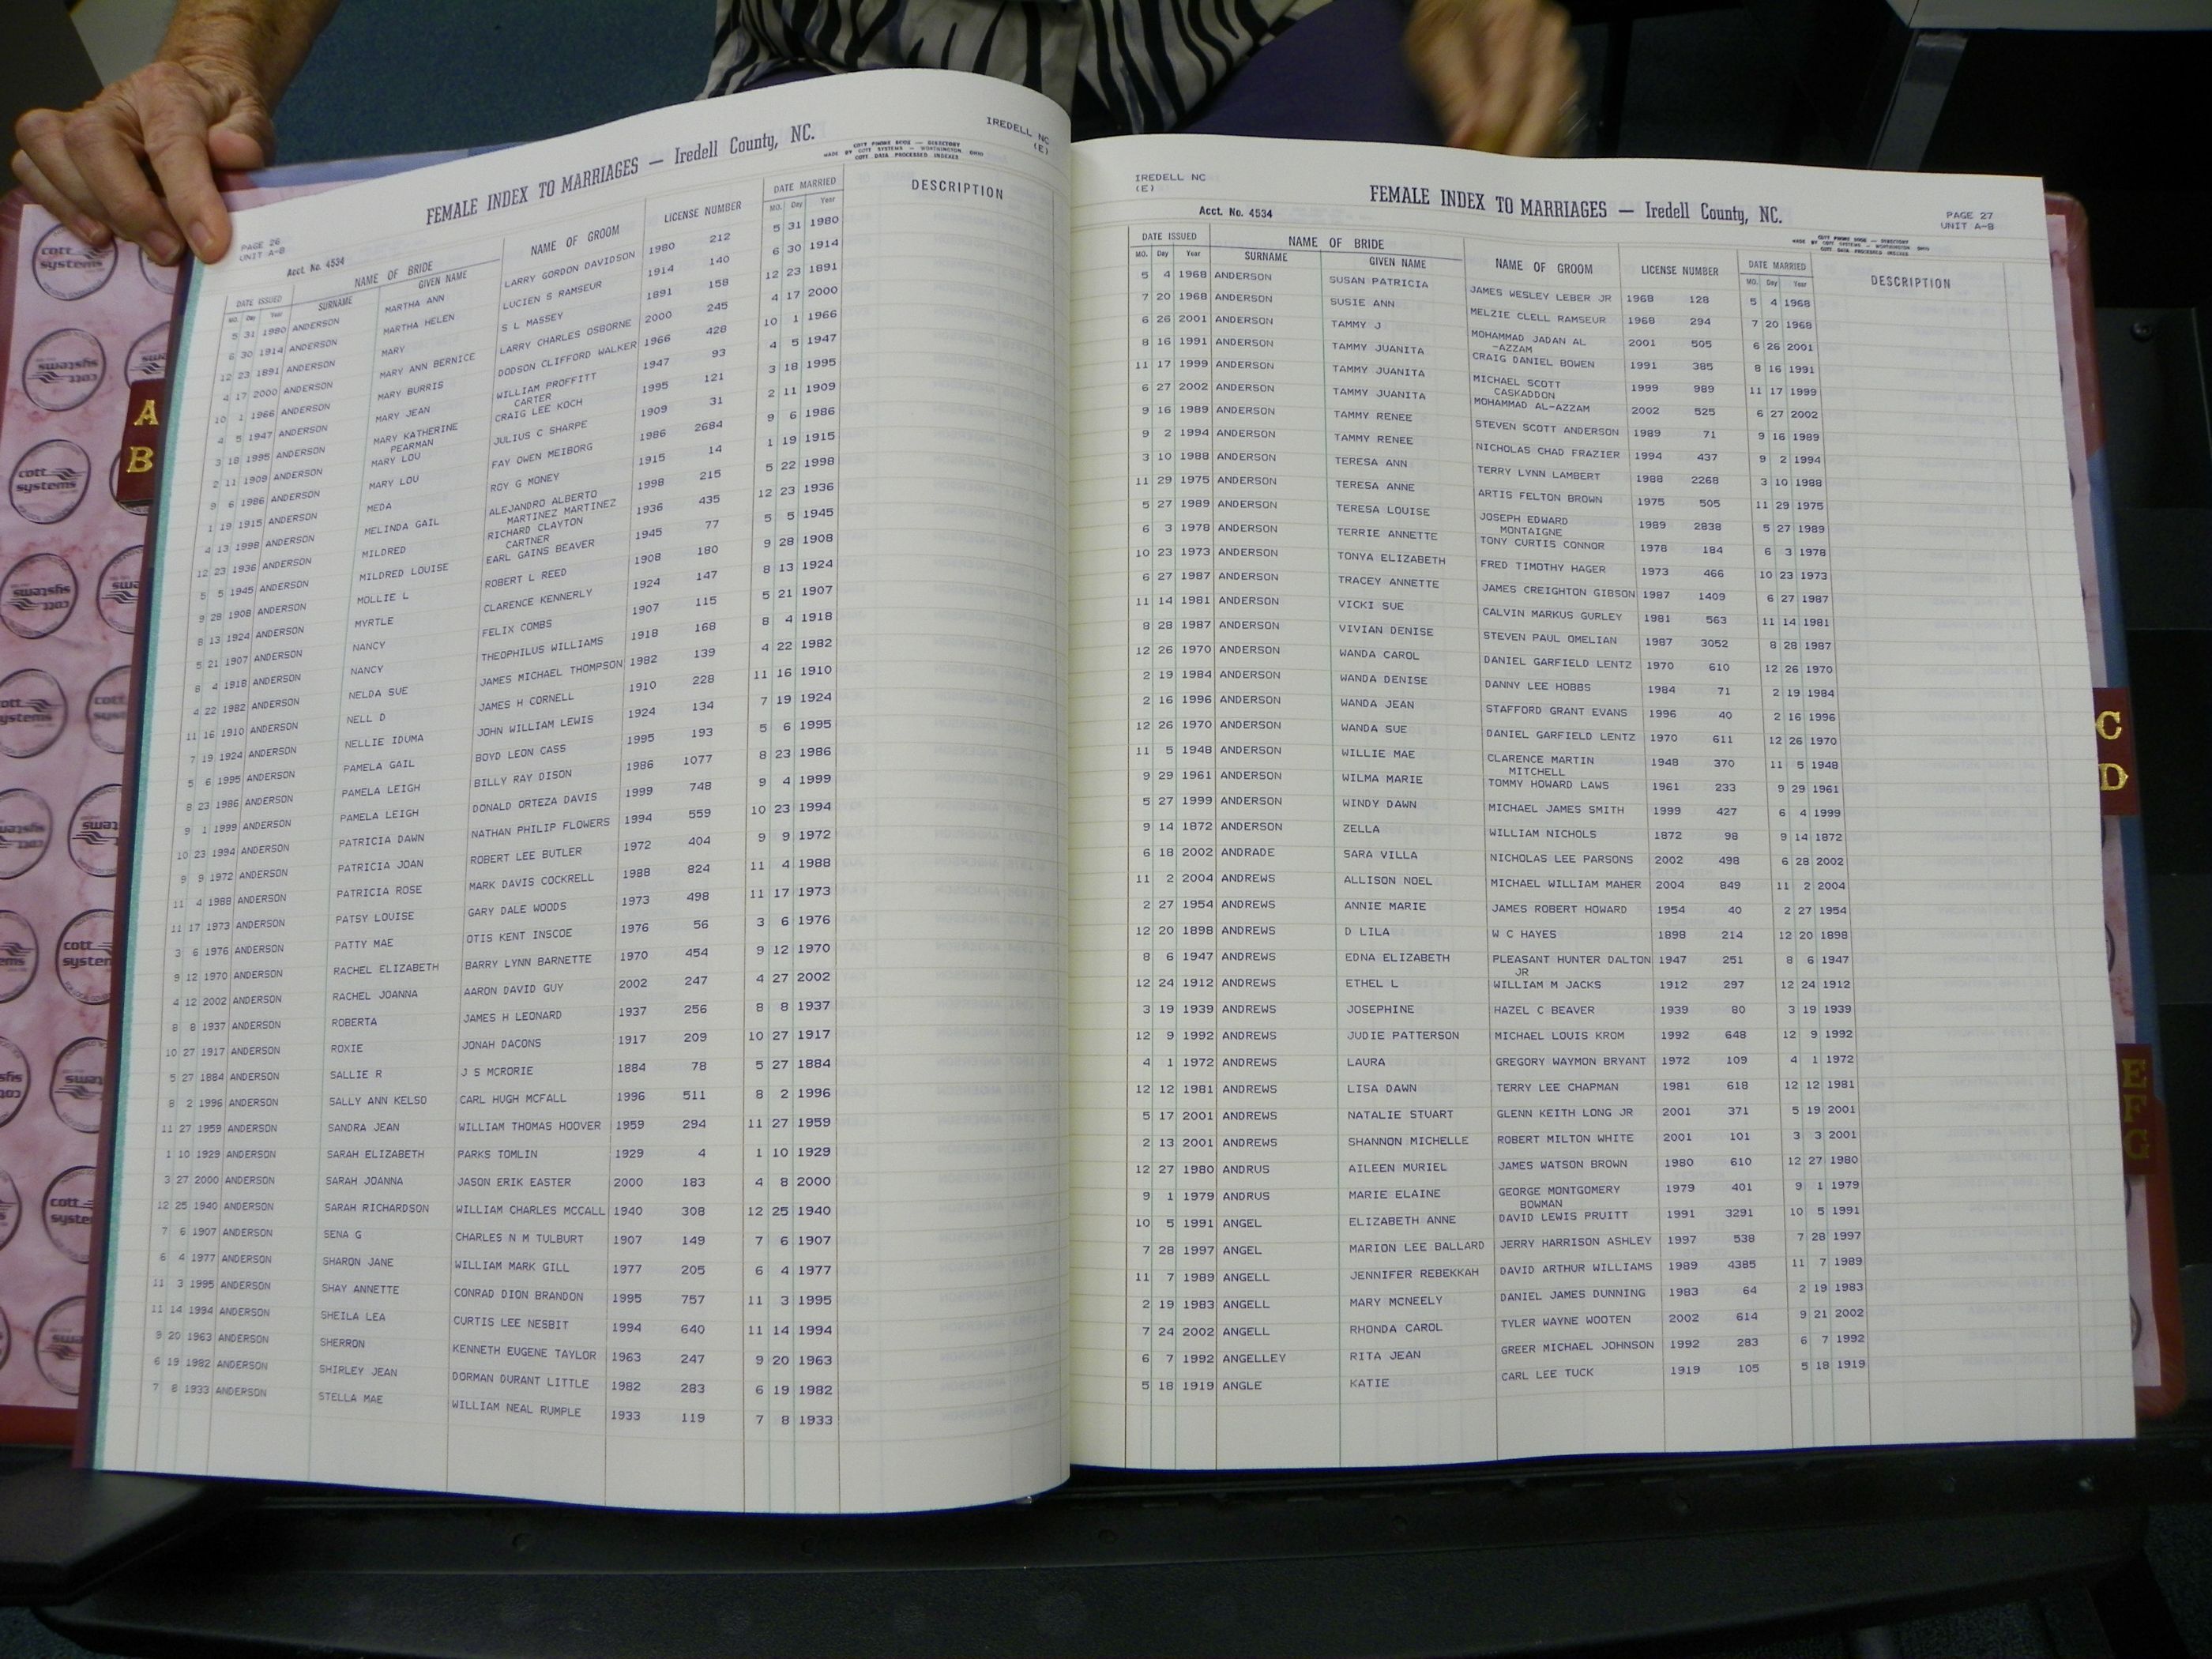 IREDELL NC
(E)
FEMALE INDEX TO MARRIAGES — Iredell County, NC.
COTT PHONE BOOK — DIRECTORY
MADE BY COTT SYSTEMS — WORTHINGTON, OHIO
COTT DATA PROCESSED INDEXES
PAGE 26
UNIT A-B
Acct. No. 4534
DATE ISSUED NAME OF BRIDE NAME OF GROOM LICENSE NUMBER DATE MARRIED DESCRIPTION
MO. Day Year SURNAME GIVEN NAME MO. Day Year
5 31 1980 ANDERSON MARTHA ANN LARRY GORDON DAVIDSON 1980 212 5 31 1980
6 30 1914 ANDERSON MARTHA HELEN LUCIEN S RAMSEUR 1914 140 6 30 1914
12 23 1891 ANDERSON MARY S L MASSEY 1891 158 12 23 1891
4 17 2000 ANDERSON MARY ANN BERNICE LARRY CHARLES OSBORNE 2000 245 4 17 2000
10 1 1966 ANDERSON MARY BURRIS DODSON CLIFFORD WALKER 1966 428 10 1 1966
4 5 1947 ANDERSON MARY JEAN WILLIAM PROFFITT 1947 93 4 5 1947
CARTER
3 18 1995 ANDERSON MARY KATHERINE CRAIG LEE KOCH 1995 121 3 18 1995
PEARMAN
2 11 1909 ANDERSON MARY LOU JULIUS C SHARPE 1909 31 2 11 1909
9 6 1986 ANDERSON MARY LOU FAY OWEN MEIBORG 1986 2684 9 6 1986
1 19 1915 ANDERSON MEDA ROY G MONEY 1915 14 1 19 1915
4 13 1998 ANDERSON MELINDA GAIL ALEJANDRO ALBERTO 1998 215 5 22 1998
MARTINEZ MARTINEZ
12 23 1936 ANDERSON MILDRED RICHARD CLAYTON 1936 435 12 23 1936
CARTNER
5 5 1945 ANDERSON MILDRED LOUISE EARL GAINS BEAVER 1945 77 5 5 1945
9 28 1908 ANDERSON MOLLIE L ROBERT L REED 1908 180 9 28 1908
8 13 1924 ANDERSON MYRTLE CLARENCE KENNERLY 1924 147 8 13 1924
5 21 1907 ANDERSON NANCY FELIX COMBS 1907 115 5 21 1907
8 4 1918 ANDERSON NANCY THEOPHILUS WILLIAMS 1918 168 8 4 1918
4 22 1982 ANDERSON NELDA SUE JAMES MICHAEL THOMPSON 1982 139 4 22 1982
11 16 1910 ANDERSON NELL D JAMES H CORNELL 1910 228 11 16 1910
7 19 1924 ANDERSON NELLIE IDUMA JOHN WILLIAM LEWIS 1924 134 7 19 1924
5 6 1995 ANDERSON PAMELA GAIL BOYD LEON CASS 1995 193 5 6 1995
8 23 1986 ANDERSON PAMELA LEIGH BILLY RAY DISON 1986 1077 8 23 1986
9 1 1999 ANDERSON PAMELA LEIGH DONALD ORTEZA DAVIS 1999 748 9 4 1999
10 23 1994 ANDERSON PATRICIA DAWN NATHAN PHILIP FLOWERS 1994 559 10 23 1994
9 9 1972 ANDERSON PATRICIA JOAN ROBERT LEE BUTLER 1972 404 9 9 1972
11 4 1988 ANDERSON PATRICIA ROSE MARK DAVIS COCKRELL 1988 824 11 4 1988
11 17 1973 ANDERSON PATSY LOUISE GARY DALE WOODS 1973 498 11 17 1973
3 6 1976 ANDERSON PATTY MAE OTIS KENT INSCOE 1976 56 3 6 1976
9 12 1970 ANDERSON RACHEL ELIZABETH BARRY LYNN BARNETTE 1970 454 9 12 1970
4 12 2002 ANDERSON RACHEL JOANNA AARON DAVID GUY 2002 247 4 27 2002
8 8 1937 ANDERSON ROBERTA JAMES H LEONARD 1937 256 8 8 1937
10 27 1917 ANDERSON ROXIE JONAH DACONS 1917 209 10 27 1917
5 27 1884 ANDERSON SALLIE R J S MCRORIE 1884 78 5 27 1884
8 2 1996 ANDERSON SALLY ANN KELSO CARL HUGH MCFALL 1996 511 8 2 1996
11 27 1959 ANDERSON SANDRA JEAN WILLIAM THOMAS HOOVER 1959 294 11 27 1959
1 10 1929 ANDERSON SARAH ELIZABETH PARKS TOMLIN 1929 4 1 10 1929
3 27 2000 ANDERSON SARAH JOANNA JASON ERIK EASTER 2000 183 4 8 2000
12 25 1940 ANDERSON SARAH RICHARDSON WILLIAM CHARLES MCCALL 1940 308 12 25 1940
7 6 1907 ANDERSON SENA G CHARLES N M TULBURT 1907 149 7 6 1907
6 4 1977 ANDERSON SHARON JANE WILLIAM MARK GILL 1977 205 6 4 1977
11 3 1995 ANDERSON SHAY ANNETTE CONRAD DION BRANDON 1995 757 11 3 1995
11 14 1994 ANDERSON SHEILA LEA CURTIS LEE NESBIT 1994 640 11 14 1994
9 20 1963 ANDERSON SHERRON KENNETH EUGENE TAYLOR 1963 247 9 20 1963
6 19 1982 ANDERSON SHIRLEY JEAN DORMAN DURANT LITTLE 1982 283 6 19 1982
7 8 1933 ANDERSON STELLA MAE WILLIAM NEAL RUMPLE 1933 119 7 8 1933
IREDELL NC
(E)
FEMALE INDEX TO MARRIAGES — Iredell County, NC.
Acct. No. 4534
PAGE 27
UNIT A-B
COTT PHONE BOOK — DIRECTORY
MADE BY COTT SYSTEMS — WORTHINGTON, OHIO
COTT DATA PROCESSED INDEXES
DATE ISSUED NAME OF BRIDE NAME OF GROOM LICENSE NUMBER DATE MARRIED DESCRIPTION
MO. Day Year SURNAME GIVEN NAME MO. Day Year
5 4 1968 ANDERSON SUSAN PATRICIA JAMES WESLEY LEBER JR 1968 128 5 4 1968
7 20 1968 ANDERSON SUSIE ANN MELZIE CLELL RAMSEUR 1968 294 7 20 1968
6 26 2001 ANDERSON TAMMY J MOHAMMAD JADAN AL 2001 505 6 26 2001
-AZZAM
8 16 1991 ANDERSON TAMMY JUANITA CRAIG DANIEL BOWEN 1991 385 8 16 1991
11 17 1999 ANDERSON TAMMY JUANITA MICHAEL SCOTT 1999 989 11 17 1999
CASKADDON
6 27 2002 ANDERSON TAMMY JUANITA MOHAMMAD AL-AZZAM 2002 525 6 27 2002
9 16 1989 ANDERSON TAMMY RENEE STEVEN SCOTT ANDERSON 1989 71 9 16 1989
9 2 1994 ANDERSON TAMMY RENEE NICHOLAS CHAD FRAZIER 1994 437 9 2 1994
3 10 1988 ANDERSON TERESA ANN TERRY LYNN LAMBERT 1988 2268 3 10 1988
11 29 1975 ANDERSON TERESA ANNE ARTIS FELTON BROWN 1975 505 11 29 1975
5 27 1989 ANDERSON TERESA LOUISE JOSEPH EDWARD 1989 2838 5 27 1989
MONTAIGNE
6 3 1978 ANDERSON TERRIE ANNETTE TONY CURTIS CONNOR 1978 184 6 3 1978
10 23 1973 ANDERSON TONYA ELIZABETH FRED TIMOTHY HAGER 1973 466 10 23 1973
6 27 1987 ANDERSON TRACEY ANNETTE JAMES CREIGHTON GIBSON 1987 1409 6 27 1987
11 14 1981 ANDERSON VICKI SUE CALVIN MARKUS GURLEY 1981 563 11 14 1981
8 28 1987 ANDERSON VIVIAN DENISE STEVEN PAUL OMELIAN 1987 3052 8 28 1987
12 26 1970 ANDERSON WANDA CAROL DANIEL GARFIELD LENTZ 1970 610 12 26 1970
2 19 1984 ANDERSON WANDA DENISE DANNY LEE HOBBS 1984 71 2 19 1984
2 16 1996 ANDERSON WANDA JEAN STAFFORD GRANT EVANS 1996 40 2 16 1996
12 26 1970 ANDERSON WANDA SUE DANIEL GARFIELD LENTZ 1970 611 12 26 1970
11 5 1948 ANDERSON WILLIE MAE CLARENCE MARTIN 1948 370 11 5 1948
MITCHELL
9 29 1961 ANDERSON WILMA MARIE TOMMY HOWARD LAWS 1961 233 9 29 1961
5 27 1999 ANDERSON WINDY DAWN MICHAEL JAMES SMITH 1999 427 6 4 1999
9 14 1872 ANDERSON ZELLA WILLIAM NICHOLS 1872 98 9 14 1872
6 18 2002 ANDRADE SARA VILLA NICHOLAS LEE PARSONS 2002 498 6 28 2002
11 2 2004 ANDREWS ALLISON NOEL MICHAEL WILLIAM MAHER 2004 849 11 2 2004
2 27 1954 ANDREWS ANNIE MARIE JAMES ROBERT HOWARD 1954 40 2 27 1954
12 20 1898 ANDREWS D LILA W C HAYES 1898 214 12 20 1898
8 6 1947 ANDREWS EDNA ELIZABETH PLEASANT HUNTER DALTON 1947 251 8 6 1947
JR
12 24 1912 ANDREWS ETHEL L WILLIAM M JACKS 1912 297 12 24 1912
3 19 1939 ANDREWS JOSEPHINE HAZEL C BEAVER 1939 80 3 19 1939
12 9 1992 ANDREWS JUDIE PATTERSON MICHAEL LOUIS KROM 1992 648 12 9 1992
4 1 1972 ANDREWS LAURA GREGORY WAYMON BRYANT 1972 109 4 1 1972
12 12 1981 ANDREWS LISA DAWN TERRY LEE CHAPMAN 1981 618 12 12 1981
5 17 2001 ANDREWS NATALIE STUART GLENN KEITH LONG JR 2001 371 5 19 2001
2 13 2001 ANDREWS SHANNON MICHELLE ROBERT MILTON WHITE 2001 101 3 3 2001
12 27 1980 ANDRUS AILEEN MURIEL JAMES WATSON BROWN 1980 610 12 27 1980
9 1 1979 ANDRUS MARIE ELAINE GEORGE MONTGOMERY 1979 401 9 1 1979
BOWMAN
10 5 1991 ANGEL ELIZABETH ANNE DAVID LEWIS PRUITT 1991 3291 10 5 1991
7 28 1997 ANGEL MARION LEE BALLARD JERRY HARRISON ASHLEY 1997 538 7 28 1997
11 7 1989 ANGELL JENNIFER REBEKKAH DAVID ARTHUR WILLIAMS 1989 4385 11 7 1989
2 19 1983 ANGELL MARY MCNEELY DANIEL JAMES DUNNING 1983 64 2 19 1983
7 24 2002 ANGELL RHONDA CAROL TYLER WAYNE WOOTEN 2002 614 9 21 2002
6 7 1992 ANGELLEY RITA JEAN GREER MICHAEL JOHNSON 1992 283 6 7 1992
5 18 1919 ANGLE KATIE CARL LEE TUCK 1919 105 5 18 1919
A
B
C
D
E
F
G
cott
systems